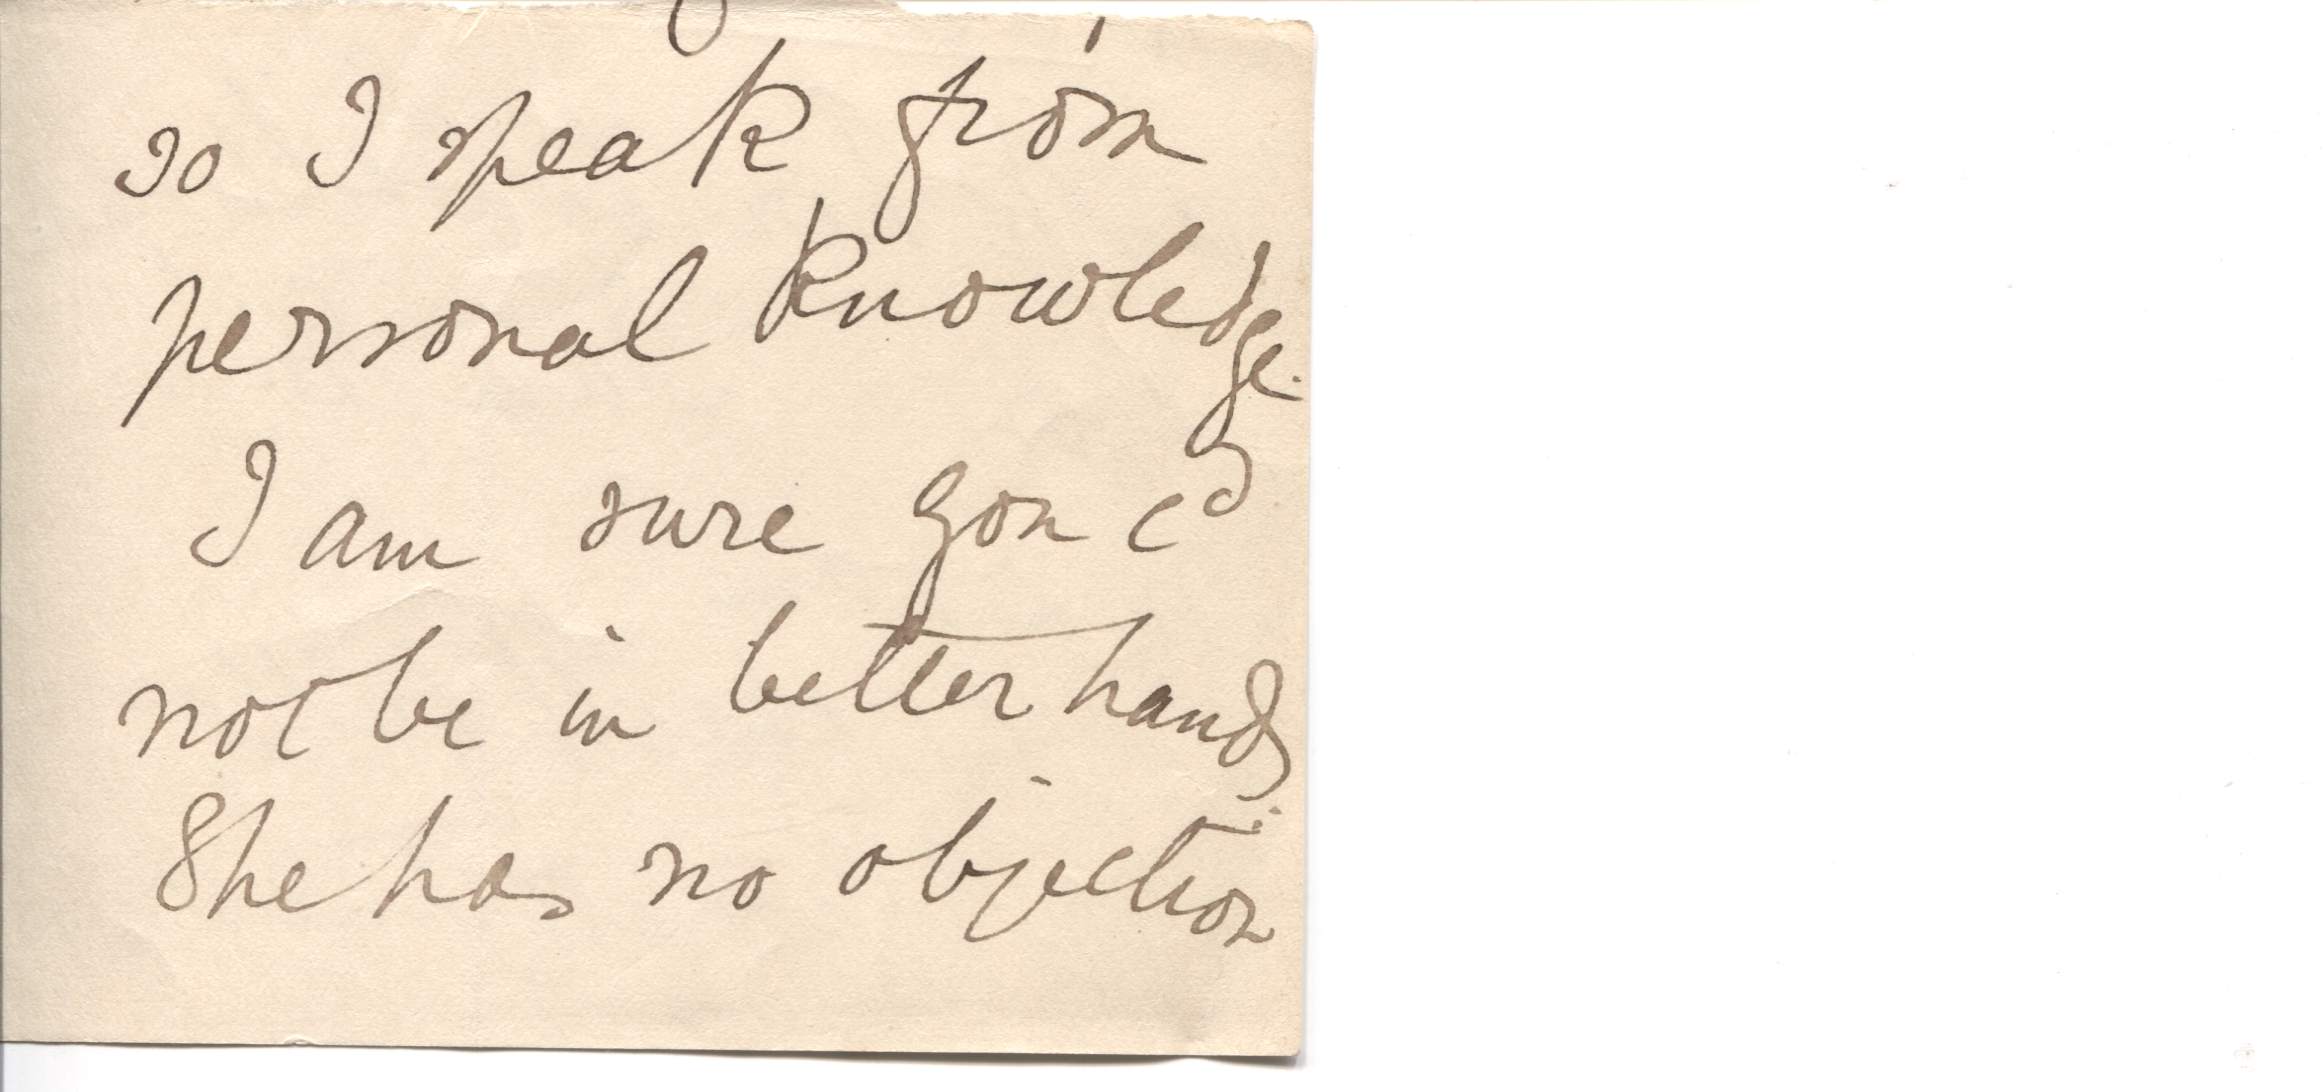 so I speak from
personal knowledge.
I am sure you cd
not be in better hands.
She has no objection